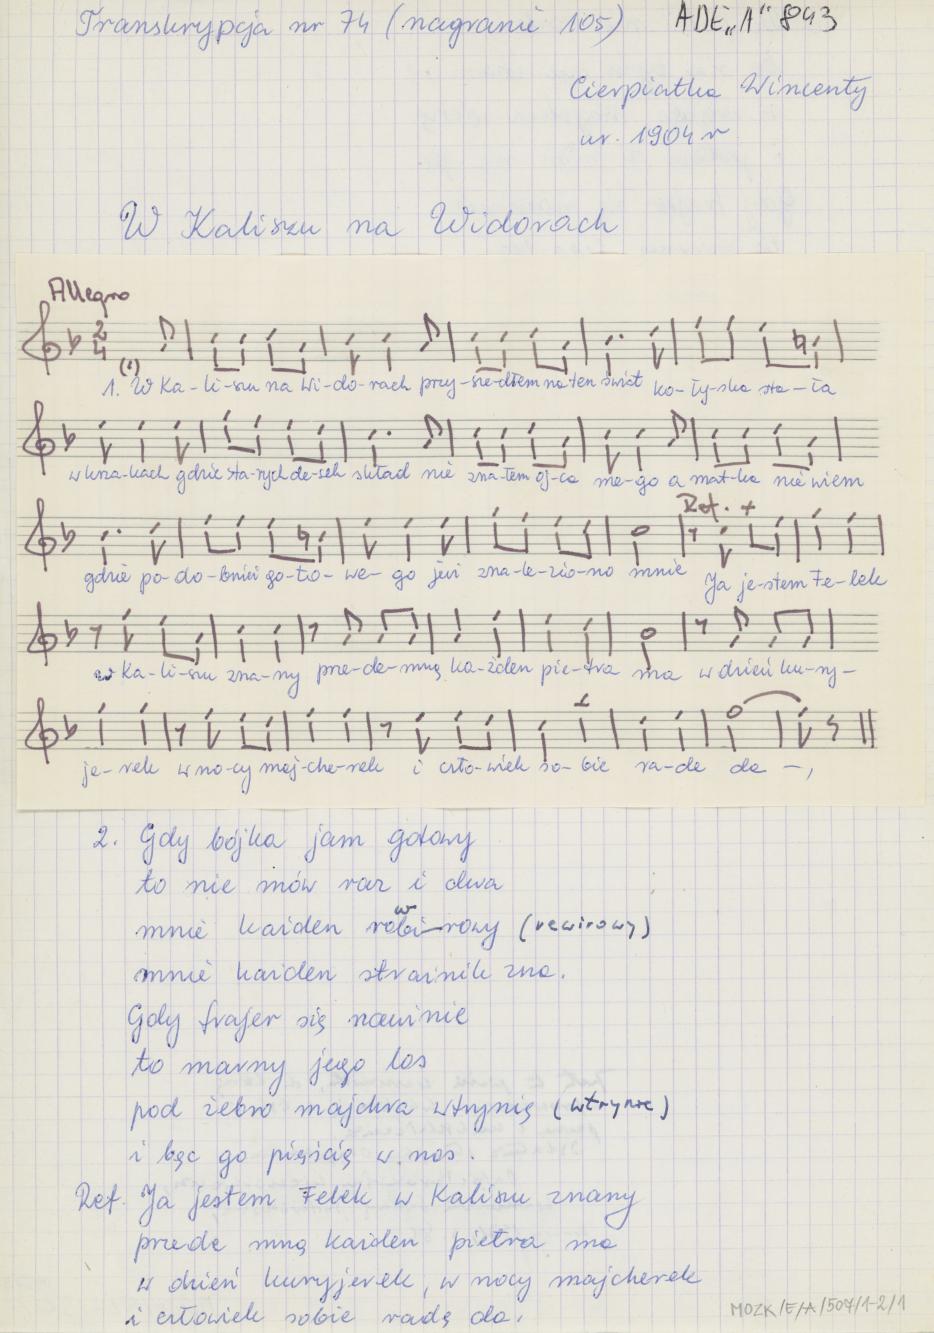 Transkrypcja nr 74 (nagranie 105) ADE „A" 843
Cierpiatka Wincenty
ur. 1904 r
W Kaliszu na Widorach
Allegro
1. W Ka-li-szu na Wi-do-rach przy-sze-dłem na ten świat ko-ły-ska sta-ła
w krza-kach gdzie sta-rych de-sek skład nie zna-łem oj-ca me-go a mat-ka nie wiem
Ref. +
gdzie po-do-bnież go-to-we-go już zna-le-zio-no mnie Ja je-stem Fe-lek
w Ka-li-szu zna-ny prze-de-mną ka-żden pie-tra ma w dzień ku-ry-
je-rek w no-cy maj-che-rek i czło-wiek so-bie ra-de da -,
2. Gdy bójka jam gotowy
to nie mów raz i dwa
w
mnie każden robi-rowy (rewirowy)
mnie każden strażnik zna.
Gdy frajer się nawinie
to marny jego los
pod żebro majchra wtrynię (wtrynie)
i bęc go pięścią w nos.
Ref. Ja jestem Felek w Kaliszu znany
przede mną każden pietra ma
w dzień kuryjerek, w nocy majcherek
i człowiek sobie radę da.
MOZK/E/A/507/1-2/1